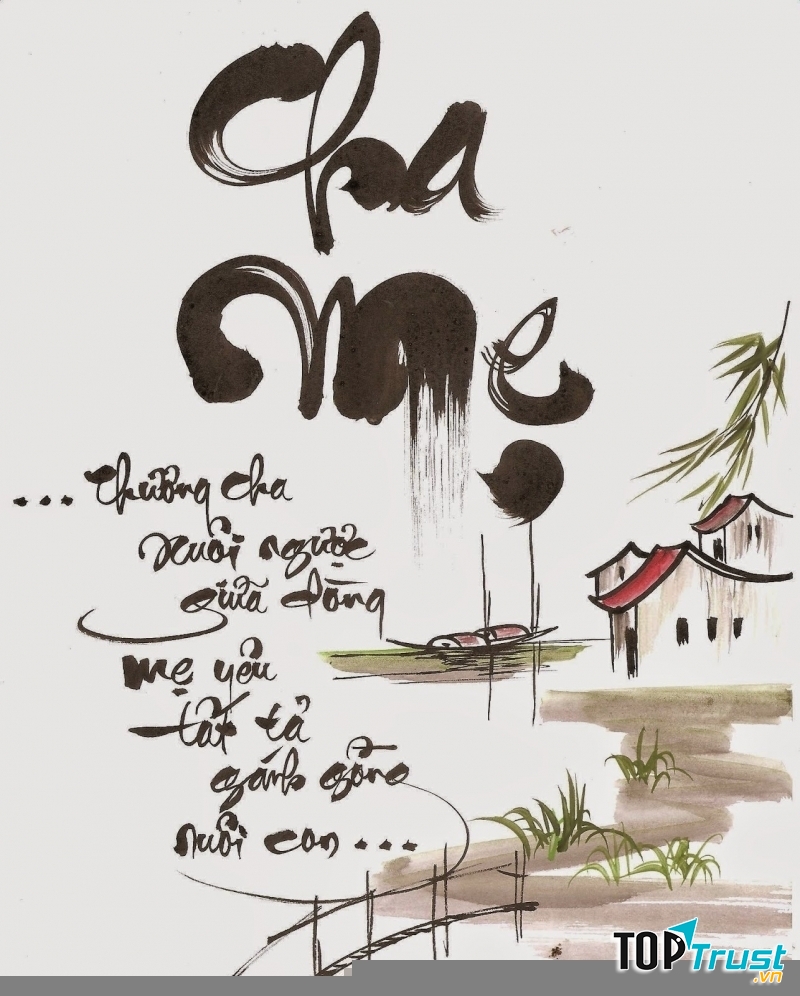 Cha
Mẹ
... Thương cha
xuôi ngược
giữa dòng
mẹ yêu
tất tả
gánh gồng
nuôi con ...
TOPTrust.vn